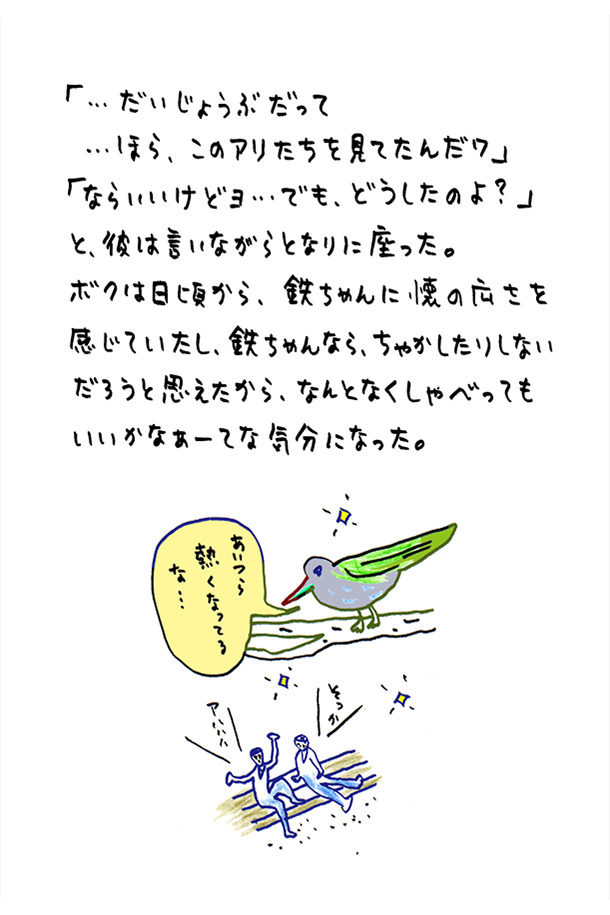 「…だいじょうぶだって
…ほら、このアリたちを見てたんだワ」
「ならいいけどヨ…でも、どうしたのよ？」
と、彼は言いながらとなりに座った。
ボクは日頃から、鉄ちゃんに懐の広さを
感じていたし、鉄ちゃんなら、ちゃかしたりしない
だろうと思えたから、なんとなくしゃべっても
いいかなぁーてな気分になった。
あいつら
熱くなってる
な…
アハハハ
そっか